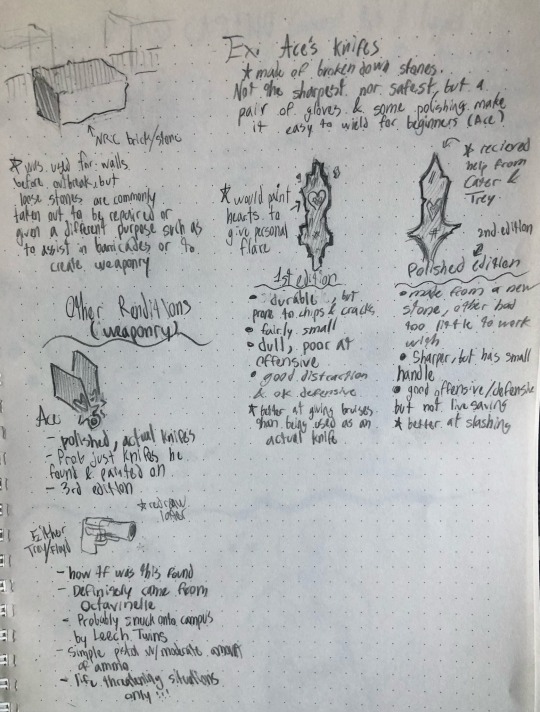 NRC brick/stone
* was used for walls
before outbreak, but
loose stones are commonly
taken out to be repaired or
given a different purpose such as
to assist in barricades or to
create weaponry
Ex: Ace's Knifes
* made of broken down stones.
Not the sharpest nor safest, but a
pair of gloves & some polishing make
it easy to wield for beginners (Ace)
* would paint
hearts to
give personal
flare
1st edition
• durable, but
prone to chips & cracks
• fairly small
• dull, poor at
offensive
• good distraction
& ok defensive
* better at giving bruises
than being used as an
actual knife
* recieved
help from
Cater &
Trey
2nd edition
Polished edition
• made from a new
stone, other had
too little to work
with
• Sharper, but has small
handle
• good offensive/defensive
but not live saving
* better at slashing
Other Renditions
(weaponry)
Ace
- polished, actual knifes
- Prob just knifes he
found & painted on
- 3rd edition
* redraw
later
Either
Trey/Floyd
- how tf was this found
- Definitely came from
Octavinelle
- Probably snuck onto campus
by Leech Twins
- Simple pistol w/ moderate amount
of ammo
- life threatening situations
only !!!